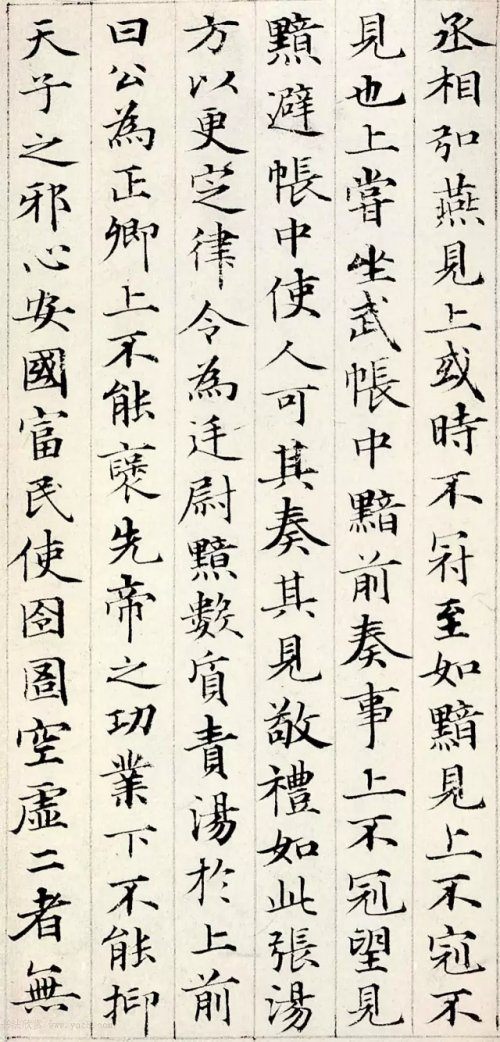 丞相弘燕見上或時不冠至如黯見上不冠不
見也上嘗坐武帳中黯前奏事上不冠望見
黯避帳中使人可其奏其見敬禮如此張湯
方以更定律令為廷尉黯數質責湯於上前
曰公為正卿上不能褒先帝之功業下不能抑
天子之邪心安國富民使囹圄空虛二者無